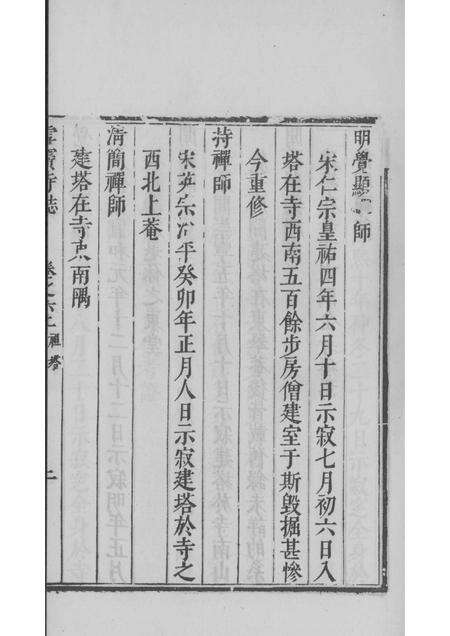 明覺顯禪師
宋仁宗皇祐四年六月十日示寂七月初六日入
塔在寺西南五百餘步房僧建室于斯毀掘甚慘
今重修
持禪師
宋英宗治平癸卯年正月人日示寂建塔於寺之
西北上菴
清簡禪師
建塔在寺東南隅
雪竇寺誌 卷之六上 祖塔 二